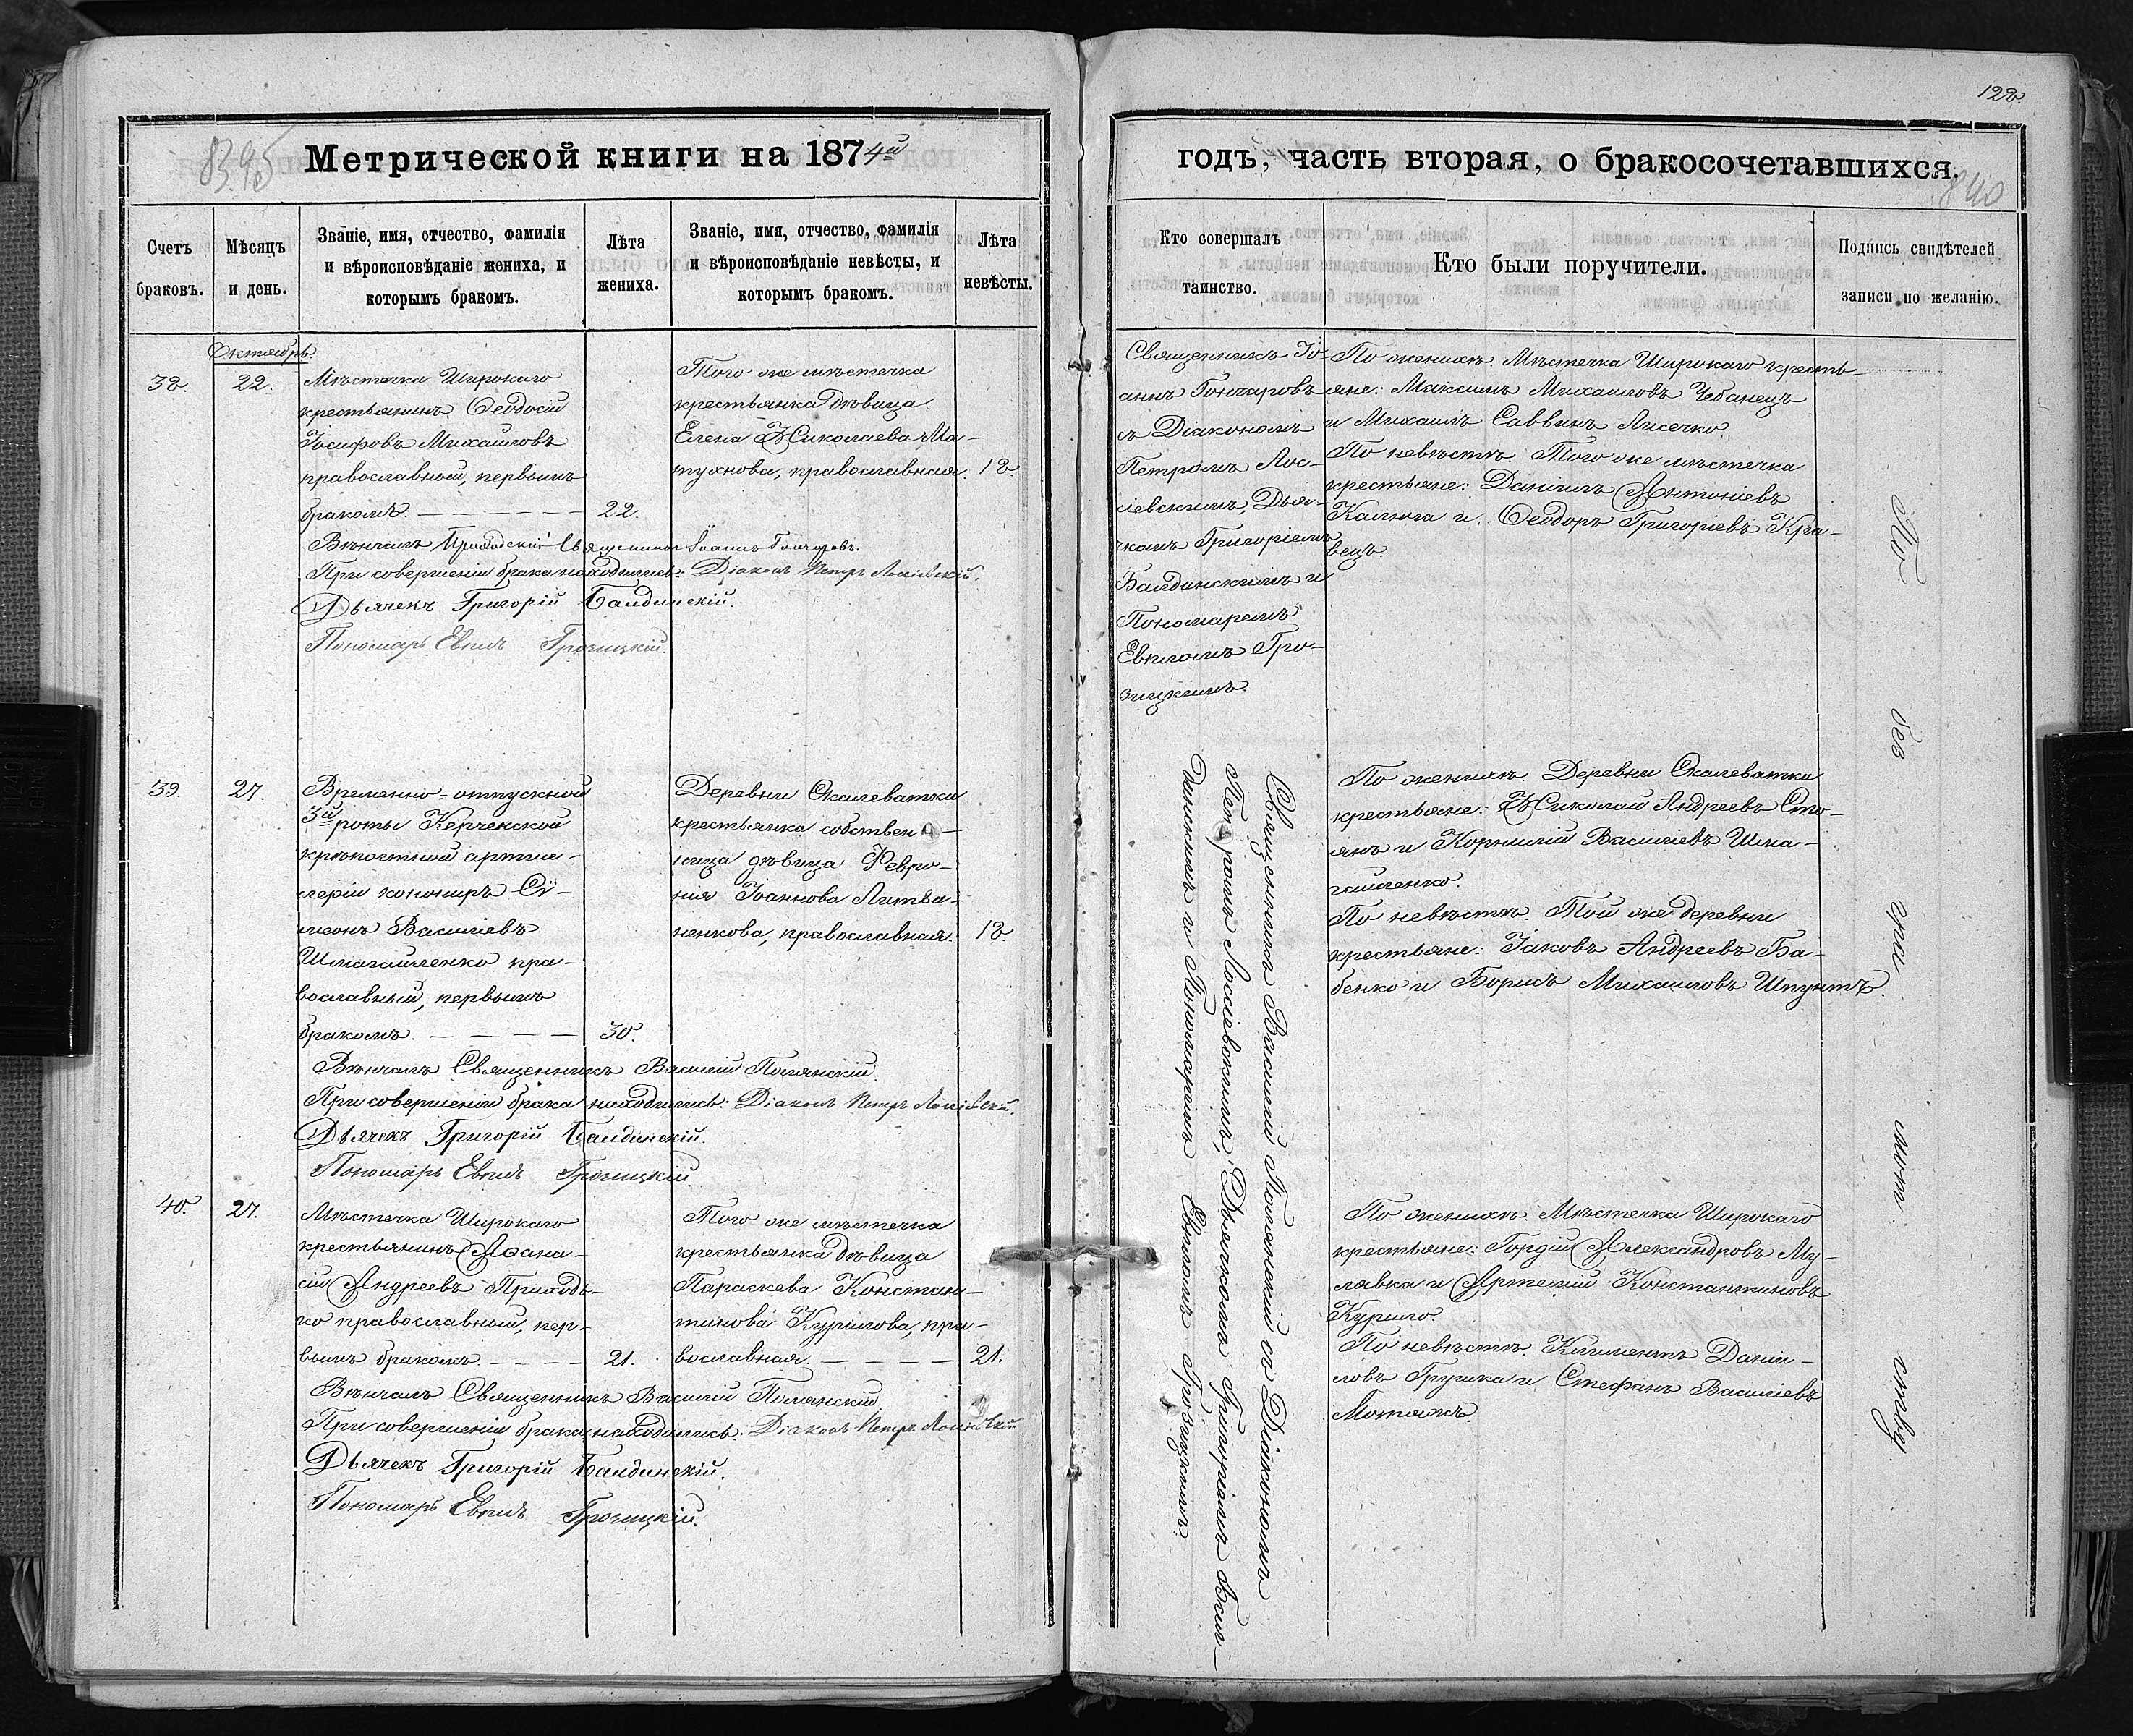 Метрической книги на 1874й
Счетъ браковъ.
Мѣсяцъ и день.
Званіе, имя, отчество, фамилія
и вѣроисповѣданіе жениха, и
которымъ бракомъ.
Лѣта
жениха.
Званіе, имя, отчество, фамилія
и вѣроисповѣданіе невѣсты, и
которымъ бракомъ.
Лѣта
невѣсты.
Октябрь.
38.
22.
Мѣстечка Широкаго
крестьянинъ Ѳеодосій
Іосифовъ Михайловъ
православный, первымъ
бракомъ. — — — — — 22.
Того же мѣстечка
крестьянка дѣвица
Елена Николаева Ма-
тухнова, православная. 18
Вѣнчалъ Приходскій Священникъ Іоаннъ Гончаровъ.
При совершеніи брака находились: Діаконъ Петръ Лосіевскій.
Дьячекъ Григорій Балдинскій.
Пономарь Евѳимъ Грозицкій.
39.
27.
Временно-отпускной
3й роты Керченской
крѣпостной артил-
леріи конониръ Сѵ-
меонъ Василіевъ
Шмагайленко пра-
вославный, первымъ
бракомъ. — — — — 30.
Деревни Скалеватки
крестьянка собствен-
ница дѣвица Февро-
нія Іоаннова Литва-
ненкова, православная. 18.
Вѣнчалъ Священникъ Василій Полянскій.
При совершеніи брака находились: Діаконъ Петръ Лосіевскій.
Дьячекъ Григорій Балдинскій.
Пономарь Евѳимъ Грозицкій.
40.
27.
Мѣстечка Широкаго
крестьянинъ Аѳана-
сій Андреевъ Приходь-
ко православный, пер-
вымъ бракомъ. — — — — 21.
Того же мѣстечка
крестьянка дѣвица
Параскева Констан-
тинова Курилова, пра-
вославная. — — — — 21.
Вѣнчалъ Священникъ Василій Полянскій.
При совершеніи брака находились: Діаконъ Петръ Лосіевскій
Дьячекъ Григорій Балдинскій.
Пономарь Евѳимъ Грозицкій.
128.
840
годъ, часть вторая, о бракосочетавшихся.
Кто совершалъ
таинство.
Кто были поручители.
Подпись свидѣтелей
записи по желанію.
Священникъ Іо-
аннъ Гончаровъ
съ Діакономъ
Петромъ Лос-
іевскимъ, Дья-
чкомъ Григоріемъ
Балдинскимъ и
Пономаремъ
Евѳимомъ Гро-
зицкимъ.
По женихѣ. Мѣстечка Широкаго кресть-
яне: Максимъ Михайловъ Чебанецъ
и Михаилъ Саввинъ Лисечко.
По невѣстѣ. Того же мѣстечка
крестьяне: Даніилъ Антоніевъ
Калюга и Ѳеодоръ Григоріевъ Кра-
вецъ.
Священникъ Василій Полянскій съ Діакономъ
Петромъ Лосіевскимъ, Дьячкомъ Григоріемъ Бал-
динскимъ и Пономаремъ Евѳимомъ Грозицкимъ.
По женихѣ. Деревни Скалеватки
крестьяне: Николай Андреевъ Сто-
янъ и Корнилій Василіевъ Шма-
гайленко.
По невѣстѣ. Той же деревни
крестьяне: Іаковъ Андреевъ Ба-
бенко и Борисъ Михайловъ Шпунтъ.
По женихѣ. Мѣстечка Широкаго
крестьяне: Гордій Александровъ Му-
лявка и Артемій Константиновъ
Курило.
По невѣстѣ. Климентъ Даніи-
ловъ Грушка и Стефанъ Василіевъ
Мотякъ.